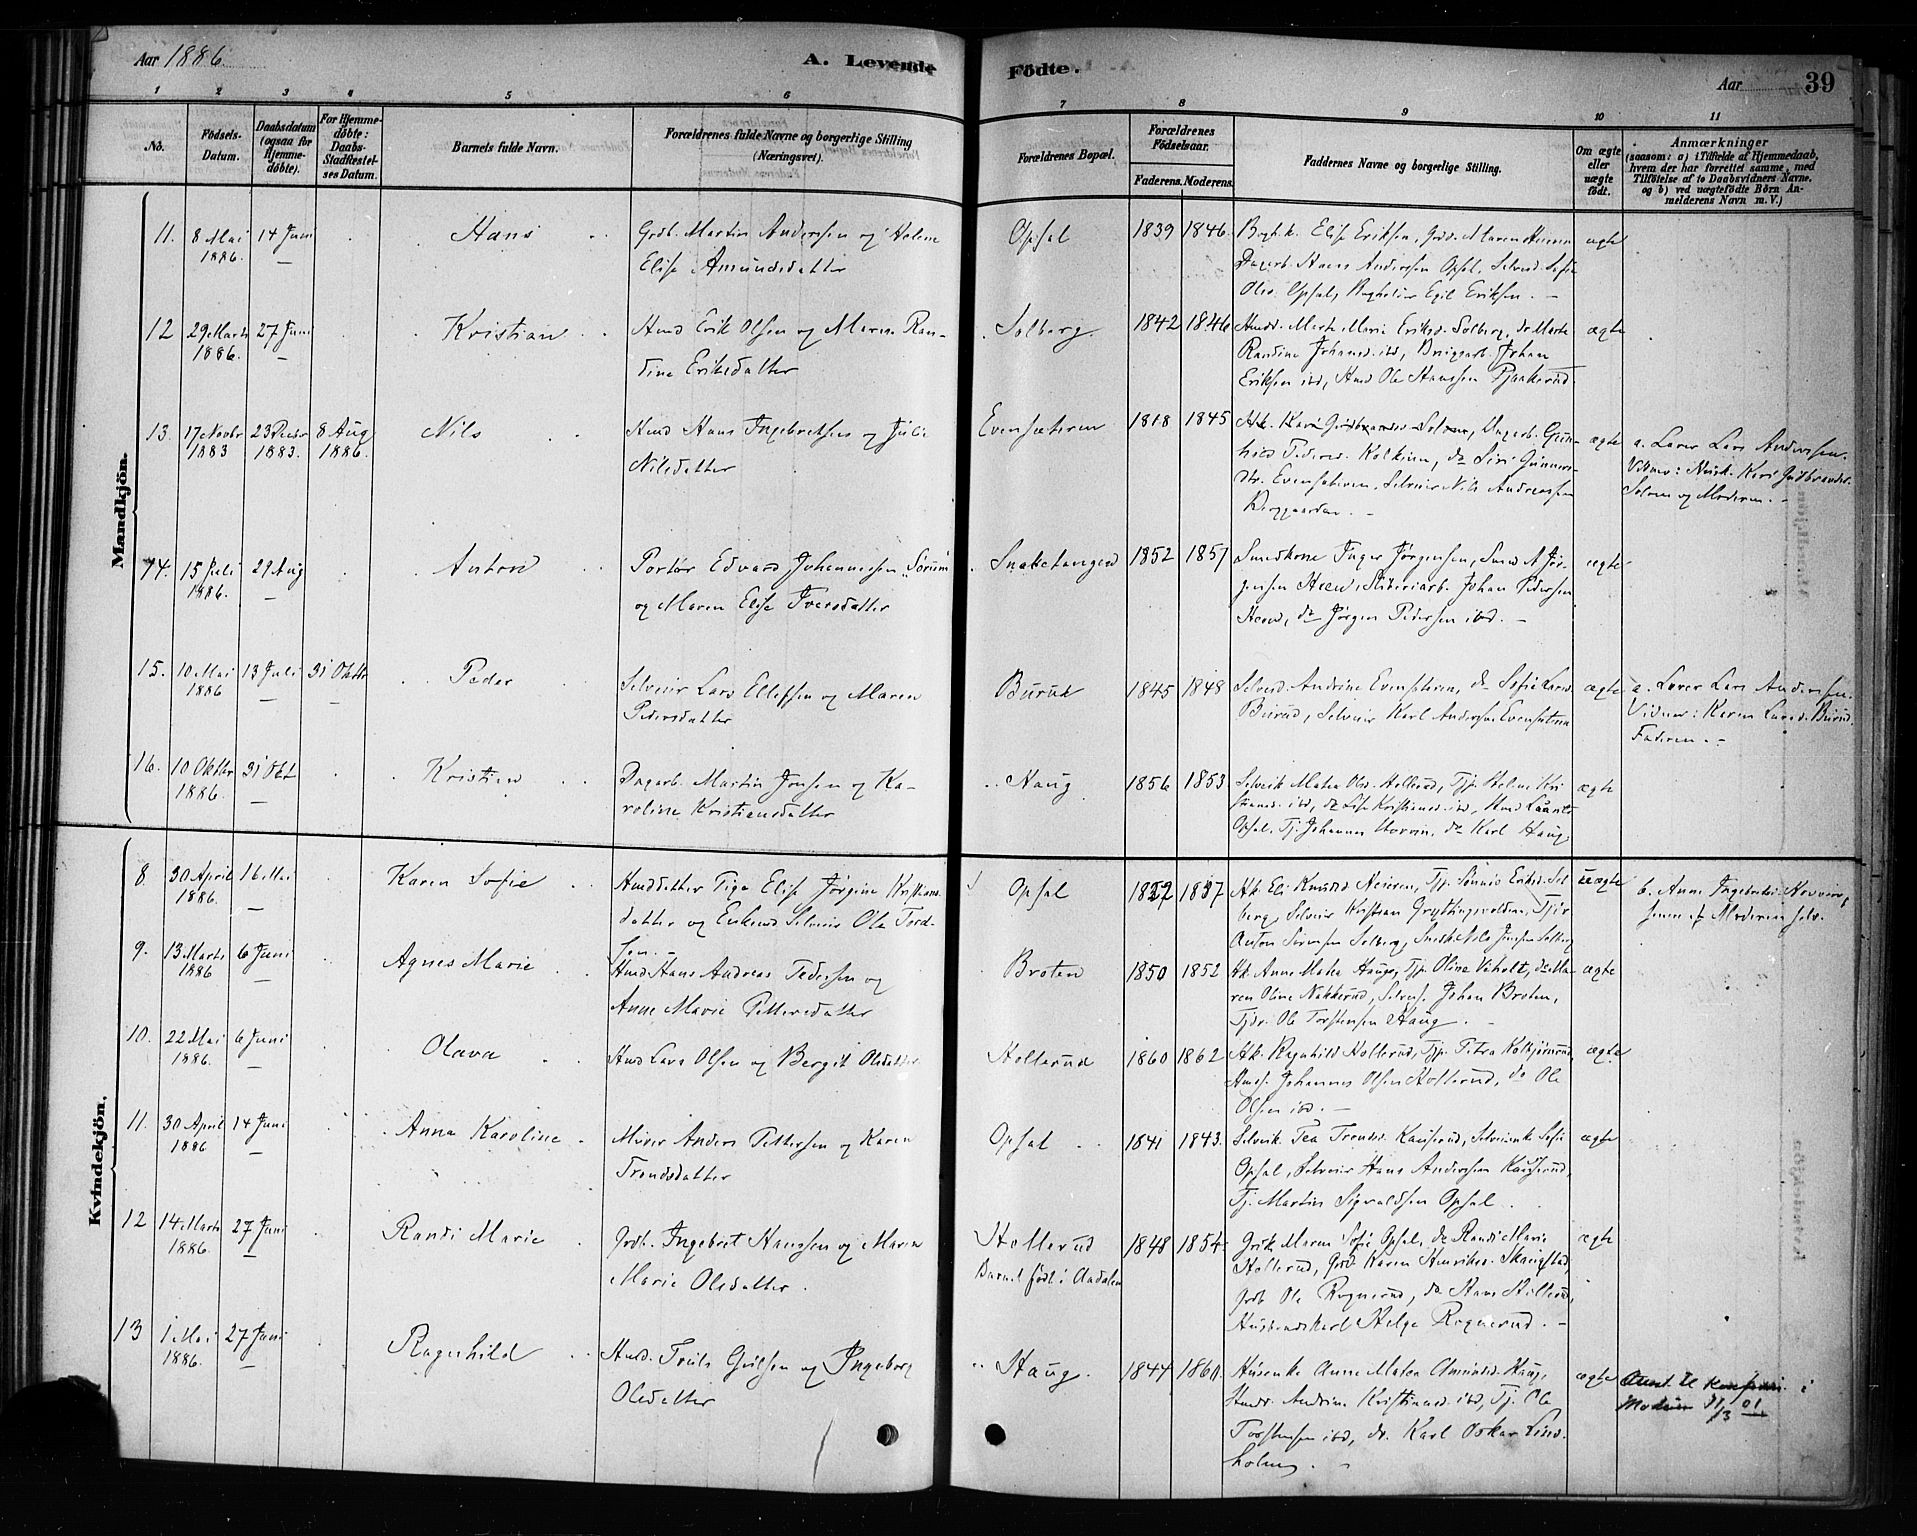 Aar 1886
A. Levende Födte.
Aar 39
1 2 3 4 5 6 7 8 9 10 11
No.
Födsels-Datum.
Daabsdatum (ogsaa for Hjemmedöbte).
For Hjemmedöbte: Daabs-Stadfæstelses Datum.
Barnets fulde Navn.
Forældrenes fulde Navne og borgerlige Stilling (Næringsvei).
Forældrenes Bopæl.
Forældrenes Födselsaar.
Faderens. Moderens.
Faddernes Navne og borgerlige Stilling.
Om ægte eller uægte födt.
Anmærkninger
(saasom: a) i Tilfælde af Hjemmedaab, hvem der har forrettet samme, med Tilföielse af to Daabsvidners Navne, og b) ved uægtefödte Börn Anmelderens Navn m. V.)
Mandkjön.
11. 8 Mai 1886. 14 Juni Hans Grdb. Martin Andersen og Helene
Elise Amundsdatter
Opsal 1839 1846. Elise Eriksen, Grd. Maren
Dagarb. Hans Andersen Opsal, Selveid. Sofie
Olsd. Opsal, Egil Eriksen. ægte
12 29 Marts 1886. 27 Juni Kristian Hmd Erik Olsen og Maren Ran-
dine Eriksdatter
Solberg. 1842 1846 Hmdd. Marte Marie Eriksd. Solberg, do Marte
Randine Johansd. ibd, Bryggarb. Johan
Eriksen ibd, Hmd Ole Hanssen Pjaakerud. ægte
13. 17 Novbr 1883 23 Decbr 1883. 8 Aug 1886. Nils Hmd Hans Ingebretsen og Juli
Nilsdatter
Evensæteren 1818 1845 Kari Gudbrandsd. Solum, Ungarb. Gun-
hild Pedersd. Kolkinn, do Siri Gunners-
dtr. Evensæteren, Selveier Nils Andreassen
Berggaarden. ægte
a. Lærer Lars Andersen.
Vidner: Kari Gudbrandsd.
Solum og Moderen.
14. 15 Juli 1886. 29 Aug Anton Portör Edvard Johannessen Sörum
og Maren Elise Iversdatter
Snaketangen 1852 1857 Smedkone Inger Jörgensen, Smed A Jör-
gensen Heen, Sliberiarb. Johan Pedersen
Heen, do Jörgen Pedersen ibd. ægte
15. 10 Mai 1886 13 Juli 31 Oktbr Peder Selveier Lars Ellefsen og Maren
Pedersdatter
Burud 1845 1848 Selveid. Andrine Evensæteren, do Sofie Larsd.
Burud, Selveier Karl Andersen Evensæteren ægte
a. Lærer Lars Andersen.
Vidner: Karen Larsd. Burud,
Faderen.
16. 10 Oktbr 1886. 31 Okt Kristian Dagarb. Martin Jensen og Ka-
roline Kristiansdatter
Haug 1856 1853 Selveik. Mathea Olsd. Hollerud, Tjp. Helene Kri-
stiansd. ibd, do Lise Kristiansd. ibd, Hmd Laurits
Opsal, Tj. Johannes Hovrin, do Karl Haug. ægte
Kvindekjön.
8. 30 April 1886. 16 Mai Karen Sofie Hmddatter Pige Elise Jörgine Kristians-
datter og Enkemd Selveier Ole Tord-
sen.
Opsal 1827 1857 Eli Knudsd Neieren, Tjp. Sönnøv Eriksd. Sol-
berg, Selveier Kristian Gryttingsvolden, Tjdr
Anton Sörensen Solberg, Nils Jensen Solberg uægte
b. Anne Ingebretsd. Hovrin,
Moderen selv.
9. 13 Marts 1886 6 Juni Agnes Marie Hmd Hans Andreas Pedersen og
Anne Marie Pettersdatter
Broten 1850 1852 Hk. Anne Mathea Haug, Tjp. Oline Viholt, do Ma-
ren Oline Nakkerud, Selvei. Johan Broten,
Tjdr. Ole Torstensen Haug. ægte
10. 22 Mai 1886. 6 Juni Olava Hmd Lars Olsen og Bergit Olsdatter
Hollerud 1860 1862 Hk. Ragnhild Hollerud, Tjp. Petra Kolbjörnrud,
Hmds. Johannes Olsen Hollerud, do Ole
Olsen ibd. ægte
11. 30 April 1886 14 Juni Anna Karoline Murer Anders Pettersen og Karen
Trondsdatter
Opsal 1841 1843. Selveik. Tea Trondsd. Kauserud, Selveierenke Sofie
Opsal, Selveier Hans Andersen Kauserud,
Tj. Martin Sigvaldsen Opsal. ægte
12 14 Marts 1886. 27 Juni Randi Marie Grdb. Ingebret Hanssen og Maren
Marie Olsdatter.
Hollerud
Barnet födt i Aadalen
1848 1854 Grdk. Maren Sofie Opsal, do Randi Marie
Hollerud, Grd. Karen Henriksd. Skangstad,
Grdb. Ole Rognerud, do Hans Hollerud,
Husbondskarl Helge Rognerud. ægte
13 1 Mai 1886. 27 Juni Ragnhild Hmd. Truls Gulsen og Ingeborg
Olsdatter
Haug. 1844 1860. Husenke Anne Mathea Amundsd. Haug,
Hmdd. Andrine Kristiansd. ibd, Tj. Ole
Torstensen ibd, do. Karl Oskar Lind-
holm. ægte